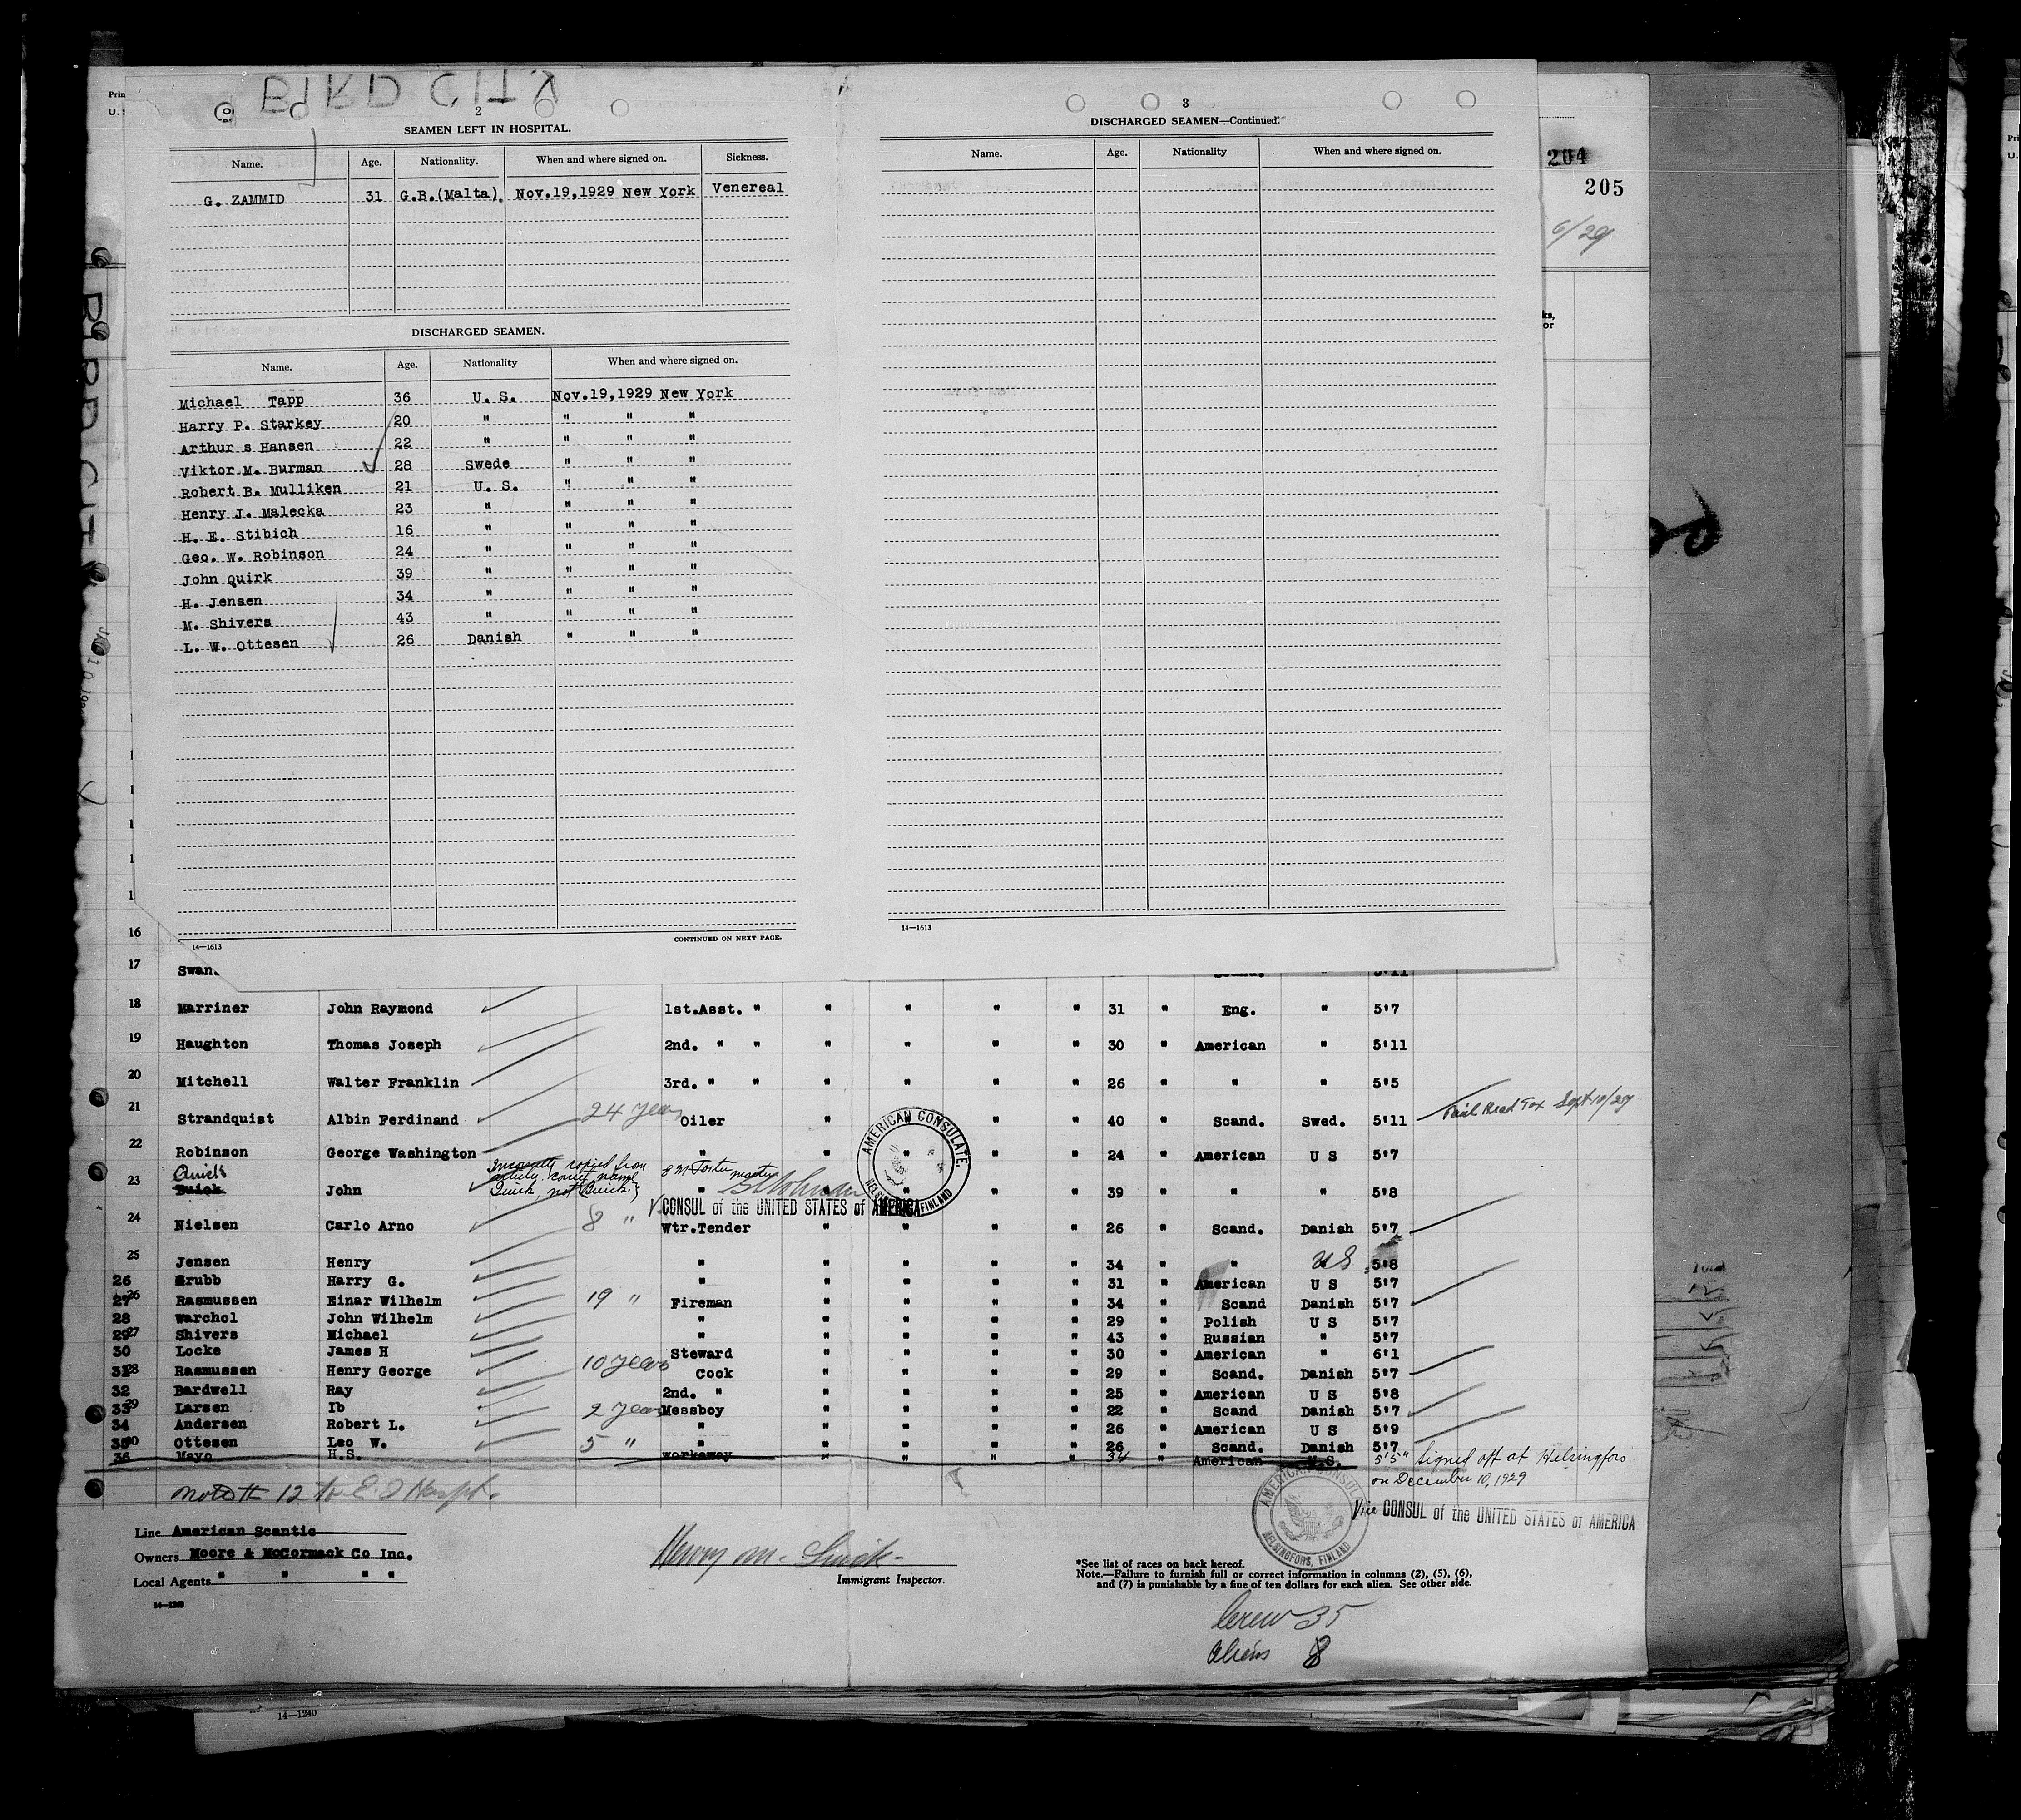 BIRD CITY
2
SEAMEN LEFT IN HOSPITAL.
Name. Age. Nationality. When and where signed on. Sickness.
G. ZAMMID 31 G.B.(Malta). Nov.19,1929 New York Venereal
DISCHARGED SEAMEN.
Name. Age. Nationality When and where signed on.
Michael Tapp 36 U. S. Nov.19,1929 New York
Harry P. Starkey 20 " " " "
Arthur s Hansen 22 " " " "
Viktor M. Burman 28 Swede " " "
Robert B. Mulliken 21 U. S. " " "
Henry J. Malecka 23 " " " "
H. E. Stibich 16 " " " "
Geo. W. Robinson 24 " " " "
John Quirk 39 " " " "
H. Jensen 34 " " " "
M. Shivers 43 " " " "
L. W. Ottesen 26 Danish " " "
14—1613 CONTINUED ON NEXT PAGE.
3
DISCHARGED SEAMEN—Continued.
Name. Age. Nationality When and where signed on.
14—1613
204
205
6/29
BIRD CITY
16
17 Swan
18 Marriner John Raymond 1st.Asst. " " " " " 31 " Eng. " 5'7
19 Haughton Thomas Joseph 2nd. " " " " " " 30 " American " 5'11
20 Mitchell Walter Franklin 3rd. " " " " " " 26 " " " 5'5
21 Strandquist Albin Ferdinand 24 years Oiler " " " " 40 " Scand. Swed. 5'11 Paid Head Tax Sept 10/29
22 Robinson George Washington " " " " " 24 " American U S 5'7
Quirk
23 Buick John " " " " " 39 " " " 5'8
Incorrectly copied from
articles. correct name
Quirk, not Buick.
E M Foster master
CONSUL of the UNITED STATES of AMERICA
AMERICAN CONSULATE, HELSINGFORS, FINLAND
24 Nielsen Carlo Arno 8 " Wtr.Tender " " " " 26 " Scand. Danish 5'7
25 Jensen Henry " " " " " 34 " " US 5'8
26 Grubb Harry G. " " " " " 31 " American U S 5'7
27 26 Rasmussen Einar Wilhelm 19 " Fireman " " " " 34 " Scand Danish 5'7
28 Warchol John Wilhelm " " " " " 29 " Polish U S 5'7
29 27 Shivers Michael " " " " " 43 " Russian " 5'7
30 Locke James H Steward " " " " 30 " American " 6'1
31 28 Rasmussen Henry George 10 years Cook " " " " 29 " Scand. Danish 5'7
32 Bardwell Ray 2nd. " " " " " 25 " American U S 5'8
33 29 Larsen Ib 2 years Messboy " " " " 22 " Scand Danish 5'7
34 Andersen Robert L. " " " " " 26 " American U S 5'9
35 30 Ottesen Leo W. 5 " " " " " " 26 " Scand. Danish 5'7
36 Mayo H.S. workaway " " " " 34 " American U.S. 5'5" Signed off at Helsingfors
on December 10, 1929
Vice CONSUL of the UNITED STATES of AMERICA
AMERICAN CONSULATE HELSINGFORS, FINLAND
Line American Scantic
Owners Moore & McCormack Co Inc.
Local Agents " " " "
Immigrant Inspector.
*See list of races on back hereof.
Note.—Failure to furnish full or correct information in columns (2), (5), (6),
and (7) is punishable by a fine of ten dollars for each alien. See other side.
Crew 35
Aliens 8
14—1240